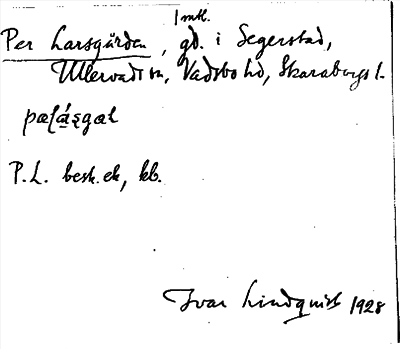 1 mtl.
Per Larsgården, gd. i Segerstad,
Ullervads sn, Vadsbo hd, Skaraborgs l.
P.L. besk. ek, kb.
Ivar Lindquist 1928